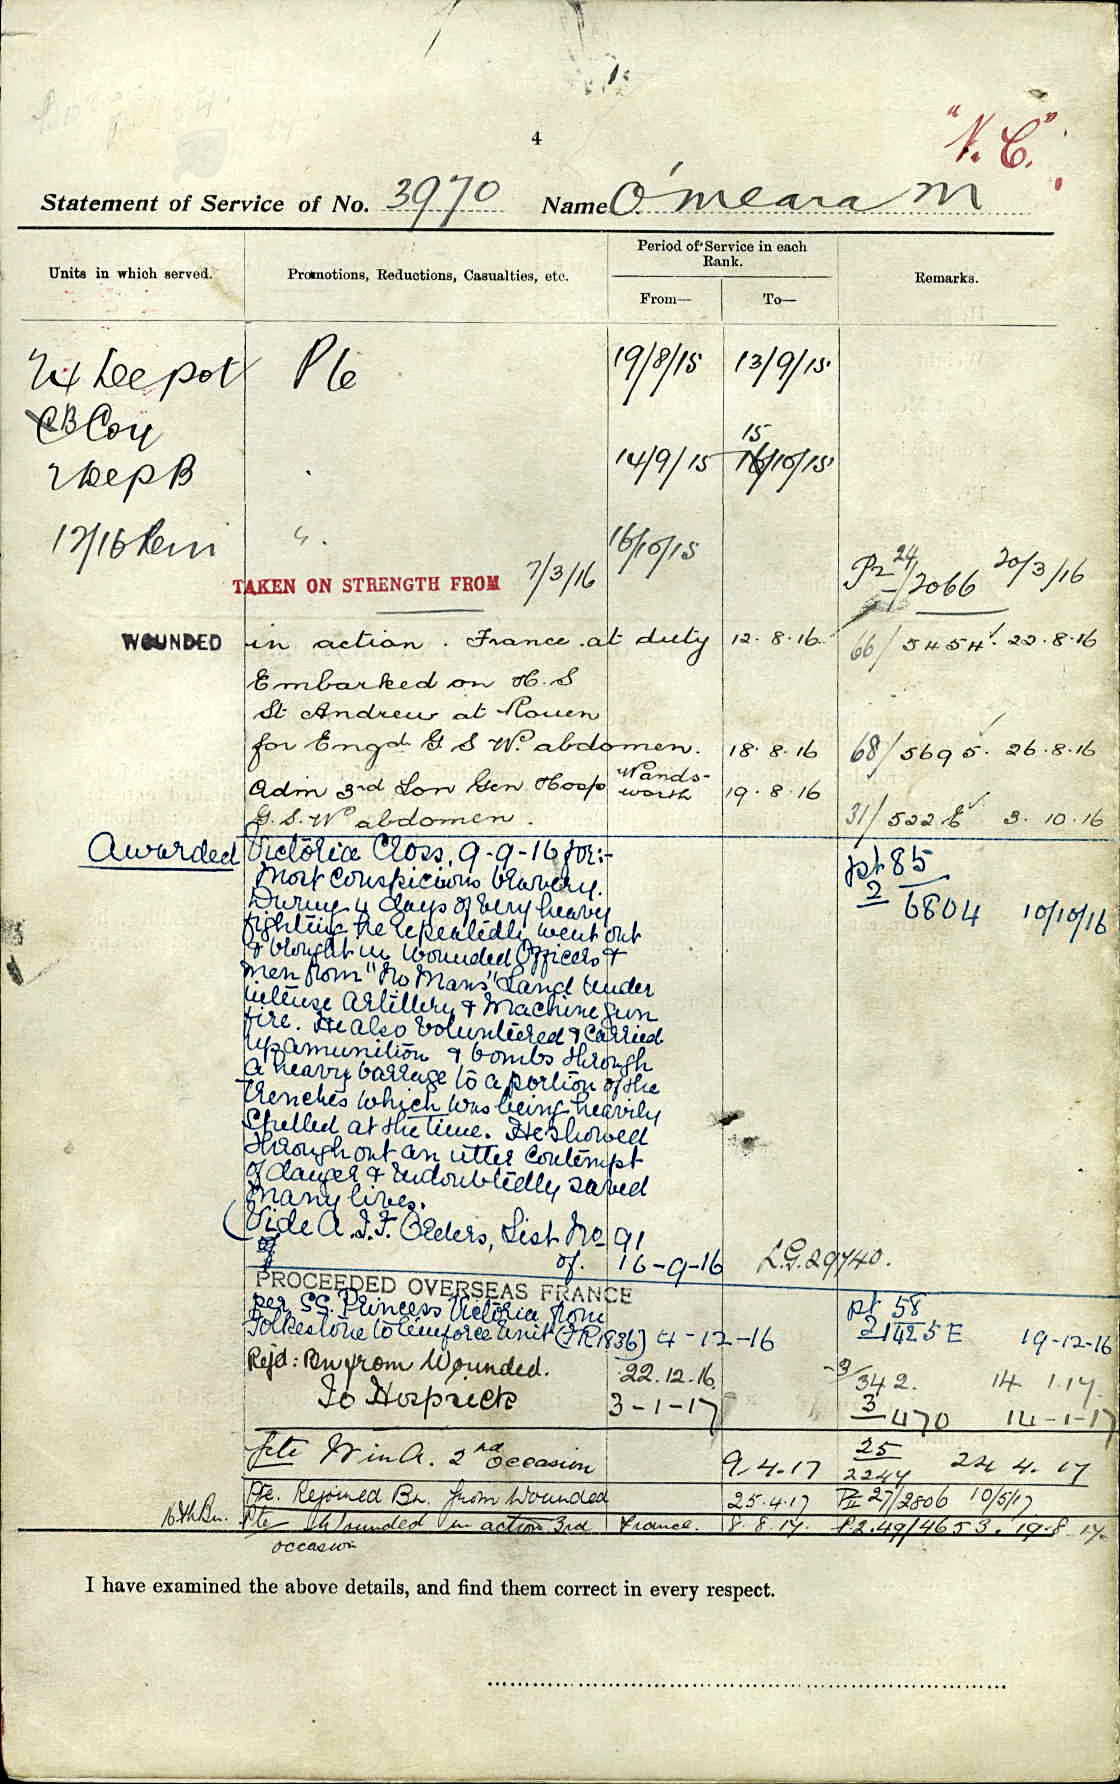 4
"V.C."
Statement of Service of No. 3970 Name O'Meara M
Units in which served. Promotions, Reductions, Casualties, etc. Period of Service in each Rank. Remarks.
From— To—
Depot Pte 19/8/15 13/9/15
B Coy
15
Dep B 14/9/15 16/10/15
12/16 Rein " 16/10/15
TAKEN ON STRENGTH FROM 7/3/16 24/2066 20/3/16
WOUNDED in action. France. at duty 12.8.16. 66/5454. 22.8.16
Embarked on H.S
St Andrew at Rouen
for Engd G S W. abdomen. 18.8.16 68/5695. 26.8.16
Adm 3rd Lon Gen Hosp Wands-worth 19.8.16
G.S.W abdomen. 31/522 3.10.16
Awarded Victoria Cross, 9-9-16 for:-
Most Conspicious bravery. pt 85
During 4 days of very heavy 2 6804 10/10/16
fighting he repeatedly went out
& brought in wounded Officers &
men from "No Mans" Land under
intense artillery & Machine gun
fire. He also volunteered & carried
up amunition & bombs through
a heavy barrage to a portion of the
trenches which was being heavily
shelled at the time. He showed
throughout an utter contempt
of danger & undoubtedly saved
many lives.
(Vide A.I.F. Orders, List No 91
of. 16-9-16 L.G. 29740.
PROCEEDED OVERSEAS FRANCE
per SS. Princess Victoria from pt 58
Folkestone to reinforce Unit (FR1836) 4-12-16 2 1425E 19-12-16
Rejd: Bn from Wounded. 22.12.16 342. 14 1.17.
To Hosp sick 3-1-17 3 470 14-1-17
Pte W in A. 2nd occasion 9.4.17 25 2244 24 4. 17
Pte. Rejoined Bn. from Wounded 25.4.17 27/2806 10/5/17
16th Bn. Pte Wounded in action 3rd France. 8.8.17. P2.49/4653. 19.8.17.
occasion
I have examined the above details, and find them correct in every respect.